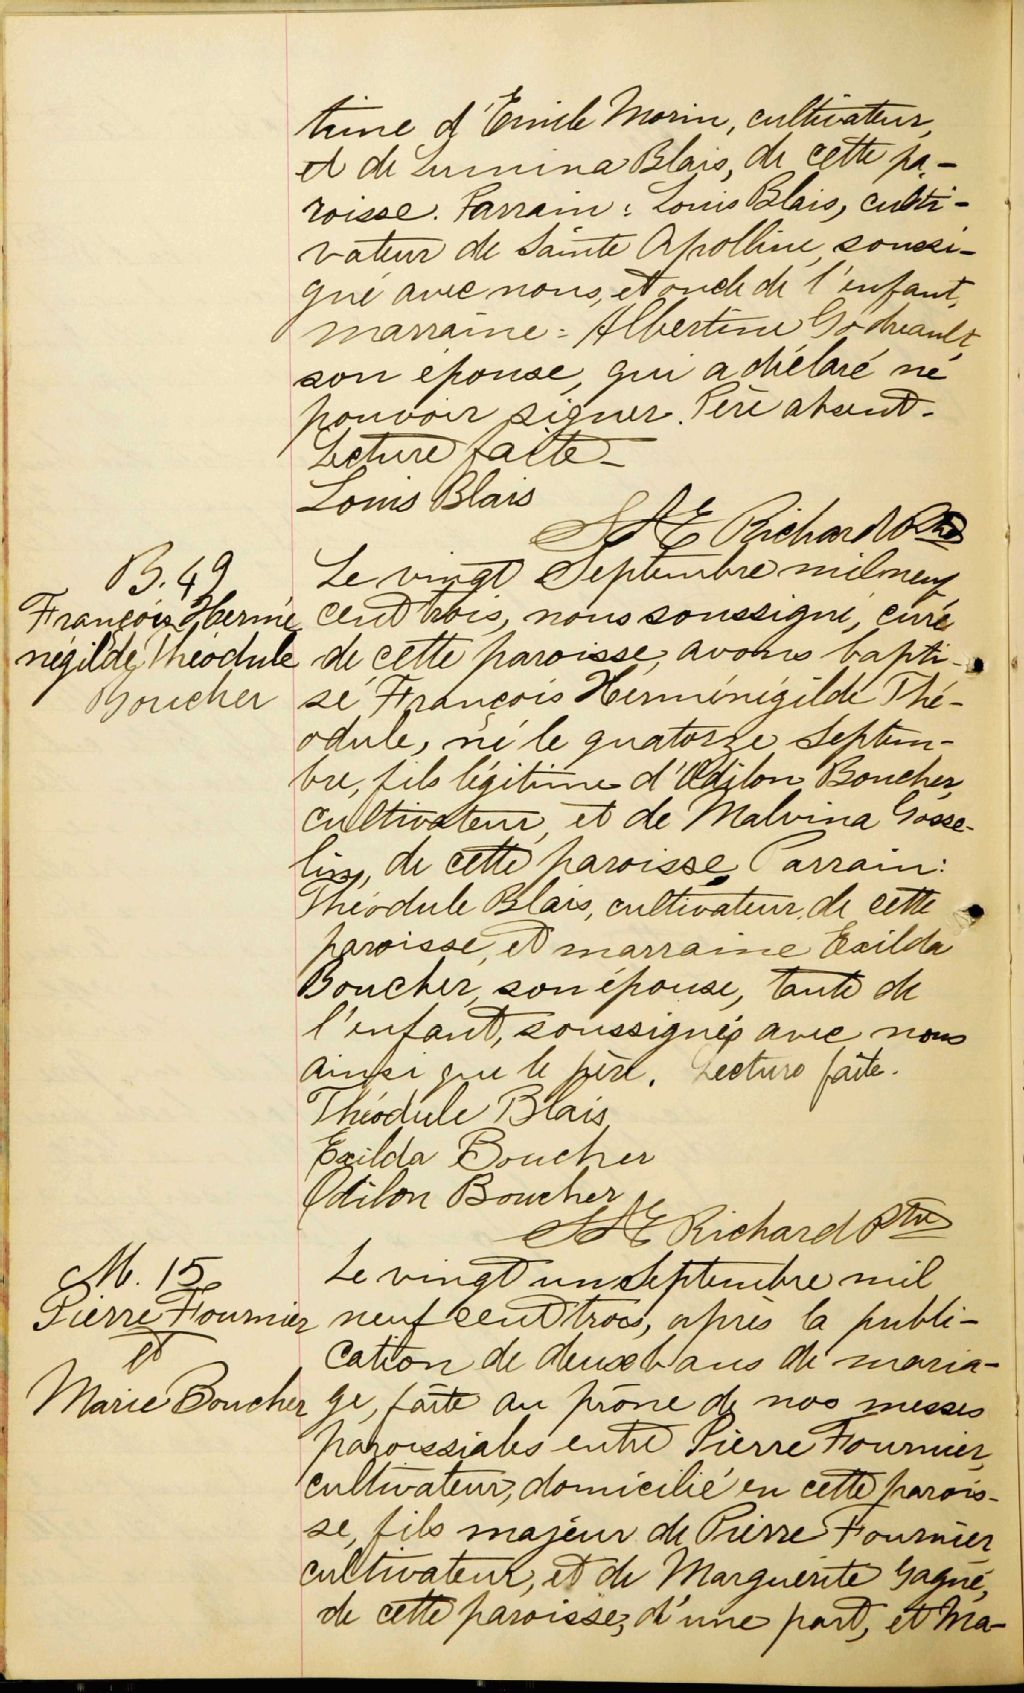 time d'Emile Morin, cultivateur,
et de Lumina Blais, de cette pa-
roisse. Parrain : Louis Blais, culti-
vateur de Sainte Apolline, soussi-
gné avec nous, et oncle de l'enfant,
marraine : Albertine Godreault,
son épouse, qui a déclaré ne
pouvoir signer. Père absent.
Lecture faite –
Louis Blais
Richard Ptre
B. 49
François Hermé
négilde Théodule
Boucher
Le vingt Septembre mil neuf
cent trois, nous soussigné, curé
de cette paroisse, avons bapti-
sé François Herménégilde Thé-
odule, né le quatorze septem-
bre, fils légitime d'Odilon Boucher,
cultivateur, et de Malvina Gosse-
lin, de cette paroisse. Parrain :
Théodule Blais, cultivateur, de cette
paroisse, et marraine Exilda
Boucher, son épouse, tante de
l'enfant, soussignés avec nous
ainsi que le père. Lecture faite.
Théodule Blais
Exilda Boucher
Odilon Boucher
Richard Ptre
M. 15
Pierre Fournier
et
Marie Boucher
Le vingt un Septembre mil
neuf cent trois, après la publi-
cation de deux bans de maria-
ge, faite au prône de nos messes
paroissiales entre Pierre Fournier,
cultivateur, domicilié en cette parois-
se, fils majeur de Pierre Fournier
cultivateur, et de Marguerite Gagné,
de cette paroisse, d'une part, et Ma-